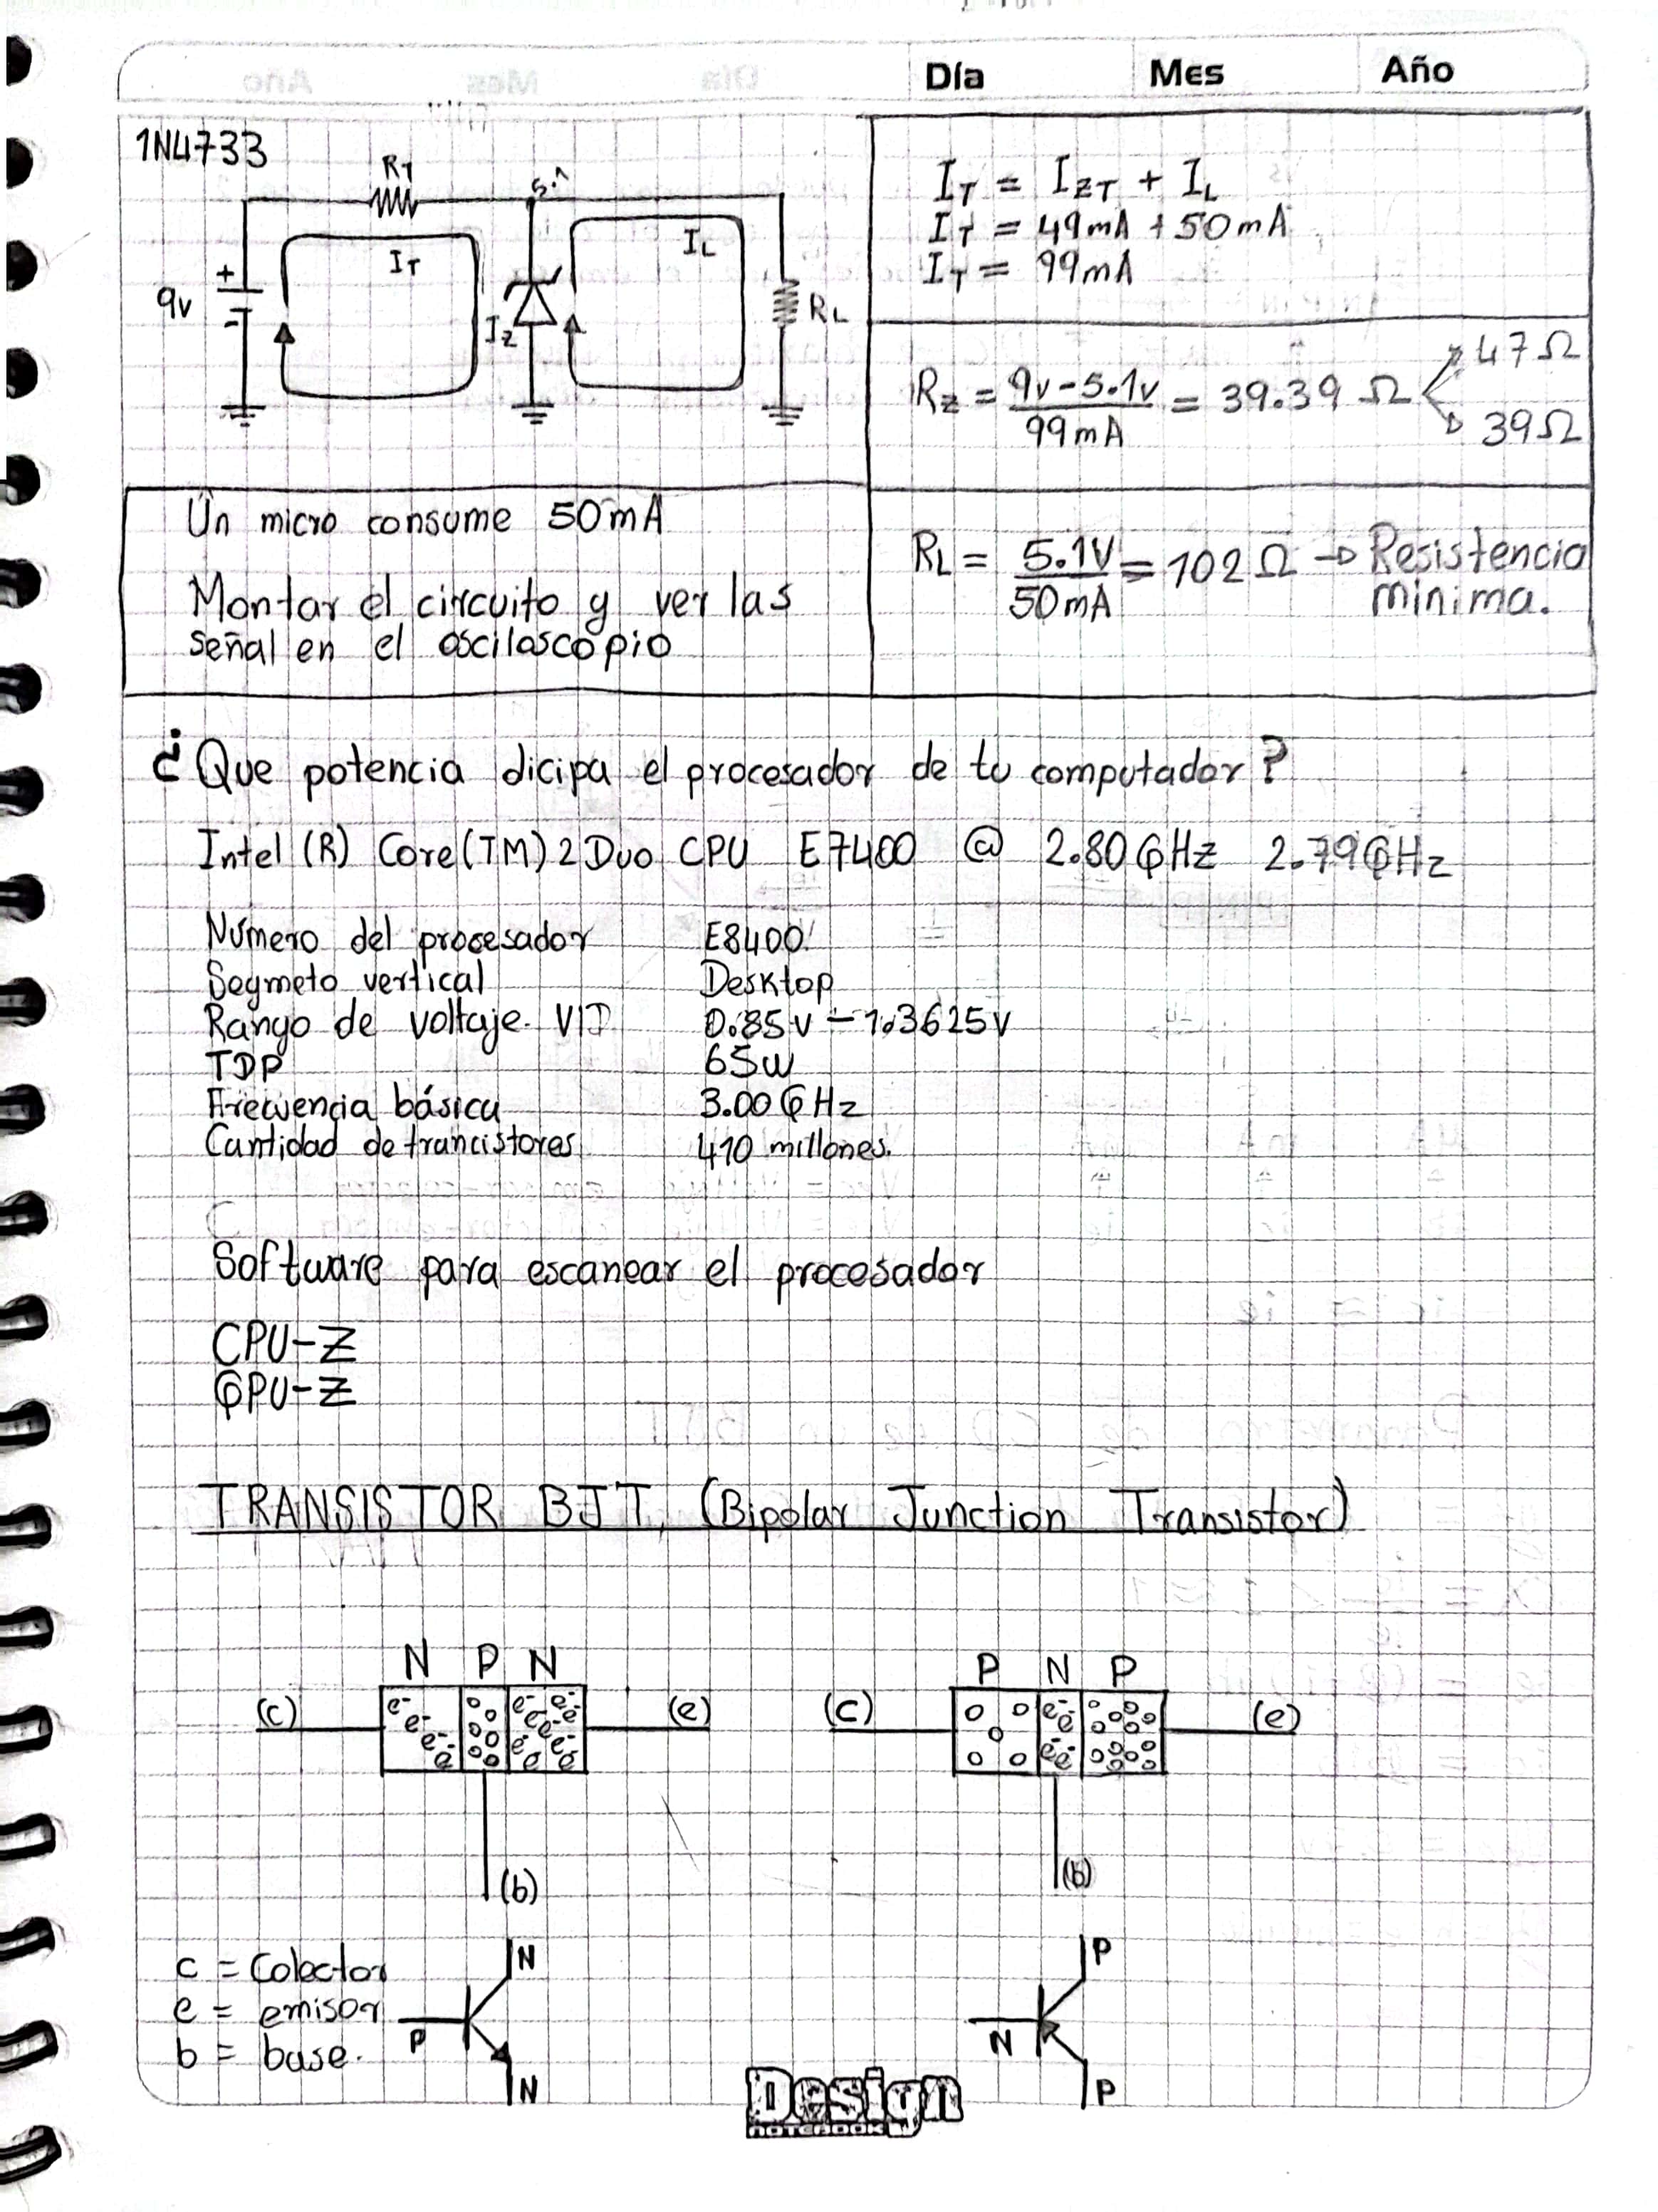 Día Mes Año
1N4733
R1
5.1
IT
IL
9v
+
-
IZ
RL
IT = IZT + IL
IT = 49mA + 50mA
IT = 99mA
RZ = 9v-5.1v / 99mA = 39.39 Ω
47Ω
39Ω
Un micro consume 50mA
Montar el circuito y ver las
señal en el osciloscopio
RL = 5.1V / 50mA = 102Ω → Resistencia
minima.
¿Que potencia dicipa el procesador de tu computador?
Intel (R) Core(TM)2 Duo CPU E7400 @ 2.80GHz 2.79GHz
Número del procesador E8400
Segmeto vertical Desktop
Rango de voltaje VID 0.85v - 1.3625v
TDP 65w
Frecuencia básica 3.00GHz
Cantidad de trancistores 410 millones.
Software para escanear el procesador
CPU-Z
GPU-Z
TRANSISTOR BJT. (Bipolar Junction Transistor)
N P N
P N P
(c) e- e- e- e- e- e- e- e- e- e- (e)
(c) e- e- e- e- (e)
(b)
(b)
c = Colector
e = emisor
b = base.
N
P
N
P
N
P
Design
NOTEBOOK